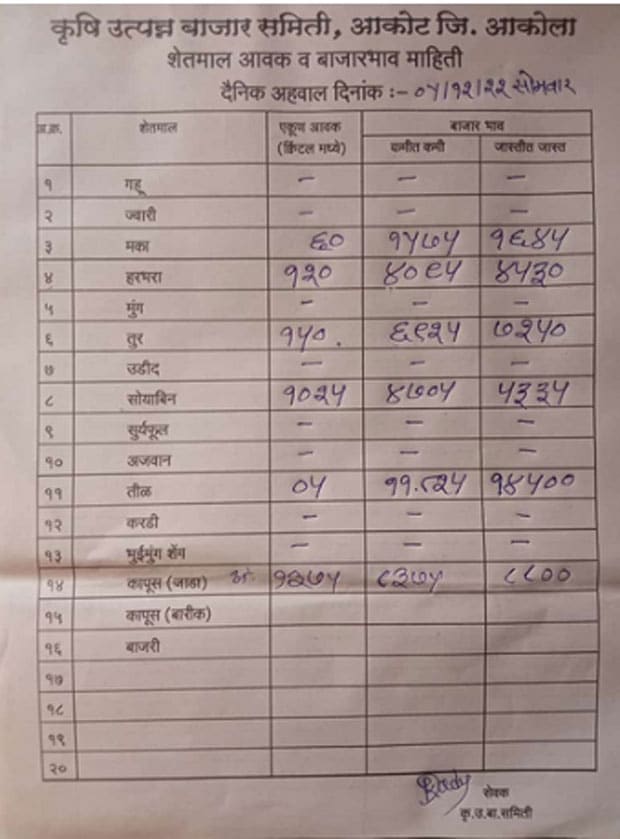 कृषि उत्पन्न बाजार समिती, आकोट जि. आकोला
शेतमाल आवक व बाजारभाव माहिती
दैनिक अहवाल दिनांक :- ०५/१२/२२ सोमवार
अ.क्र. शेतमाल एकूण आवक (क्विंटल मध्ये) बाजार भाव
कमीत कमी जास्तीत जास्त
१ गहू — — —
२ ज्वारी — — —
३ मका ६० १५७५ १६४५
४ हरभरा १२० ४०९५ ४५३०
५ मुंग — — —
६ तुर १५०. ६९२५ ७२५०
७ उडीद — — —
८ सोयाबिन १०२५ ४७०५ ५३३५
९ सुर्यफूल — — —
१० अजवान — — —
११ तीळ ०५ ११८२५ १४५००
१२ करडी — — —
१३ भुईमुंग शेंग — — —
१४ कापूस (जाडा) ८३७५ ८८००
१५ कापूस (बारीक)
१६ बाजरी
१७
१८
१९
२०
सेवक
कृ.उ.बा.समिती